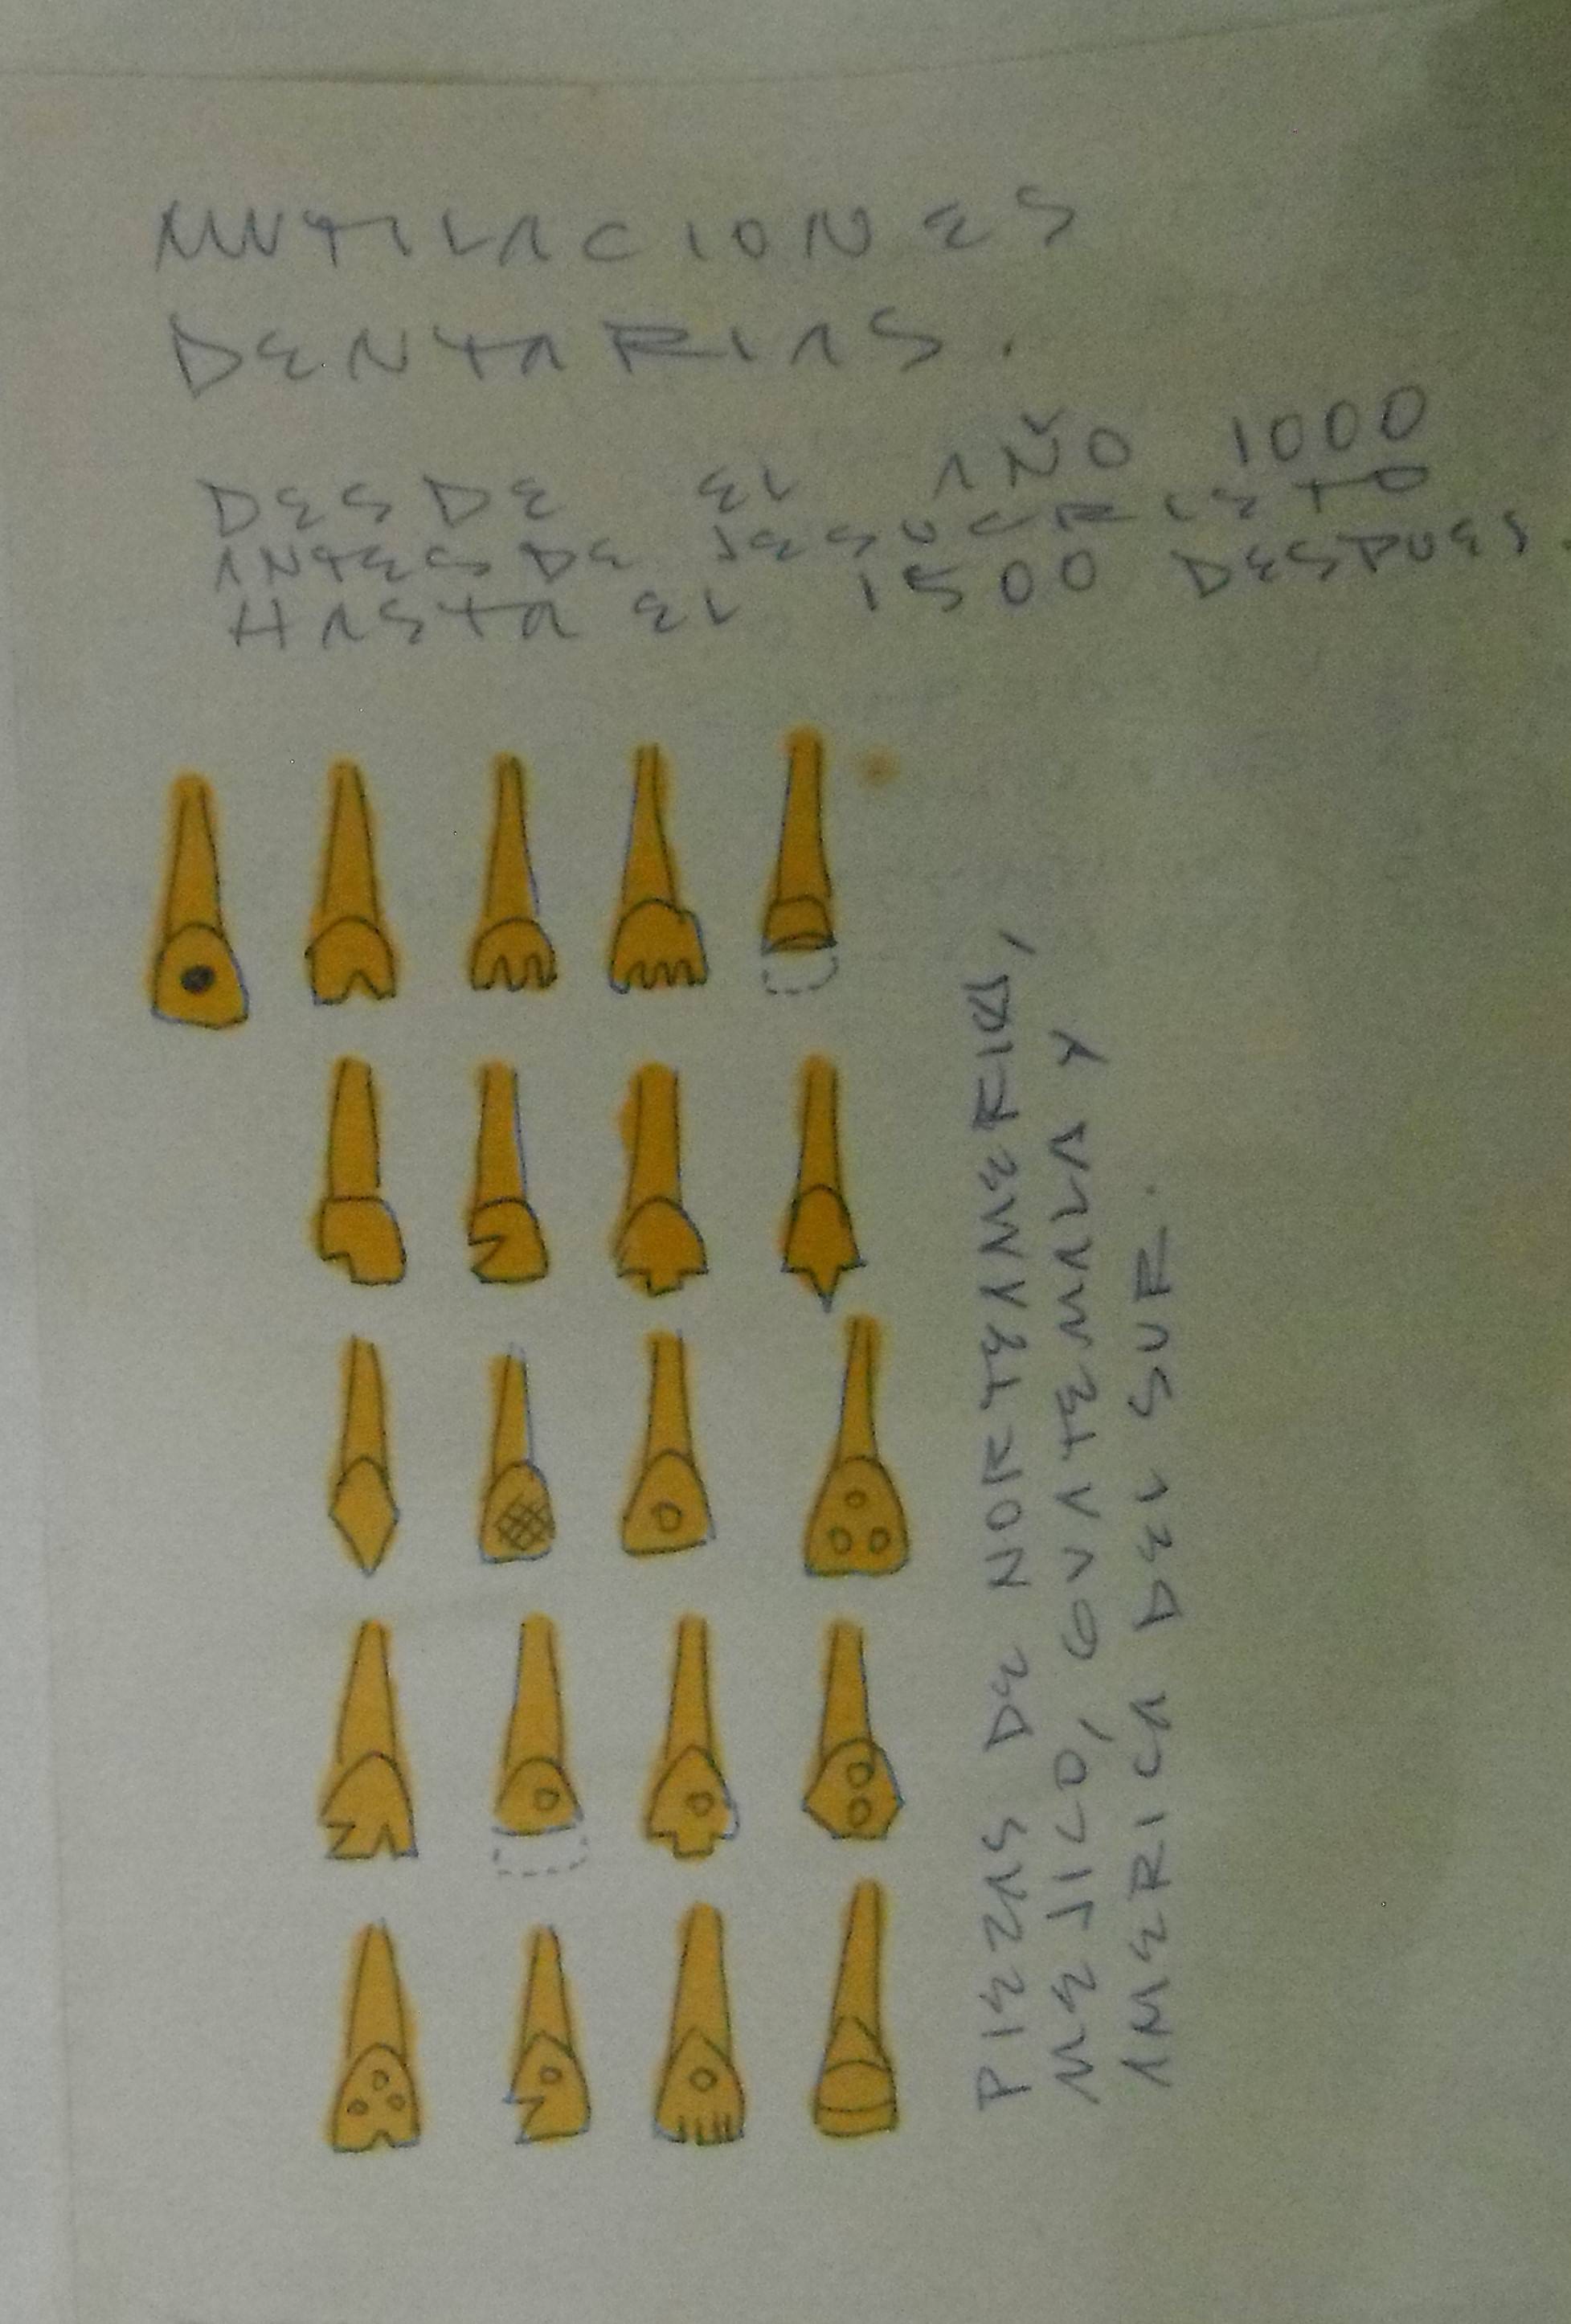 MUTILACIONES
DENTARIAS.
DESDE EL AÑO 1000
ANTES DE JESUCRISTO
HASTA EL 1500 DESPUES.
PIEZAS DE NORTEAMERICA,
MEJICO, GUATEMALA Y
AMERICA DEL SUR.